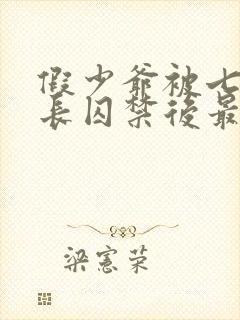 假少爺被七
長囚禁後最
梁憲荣